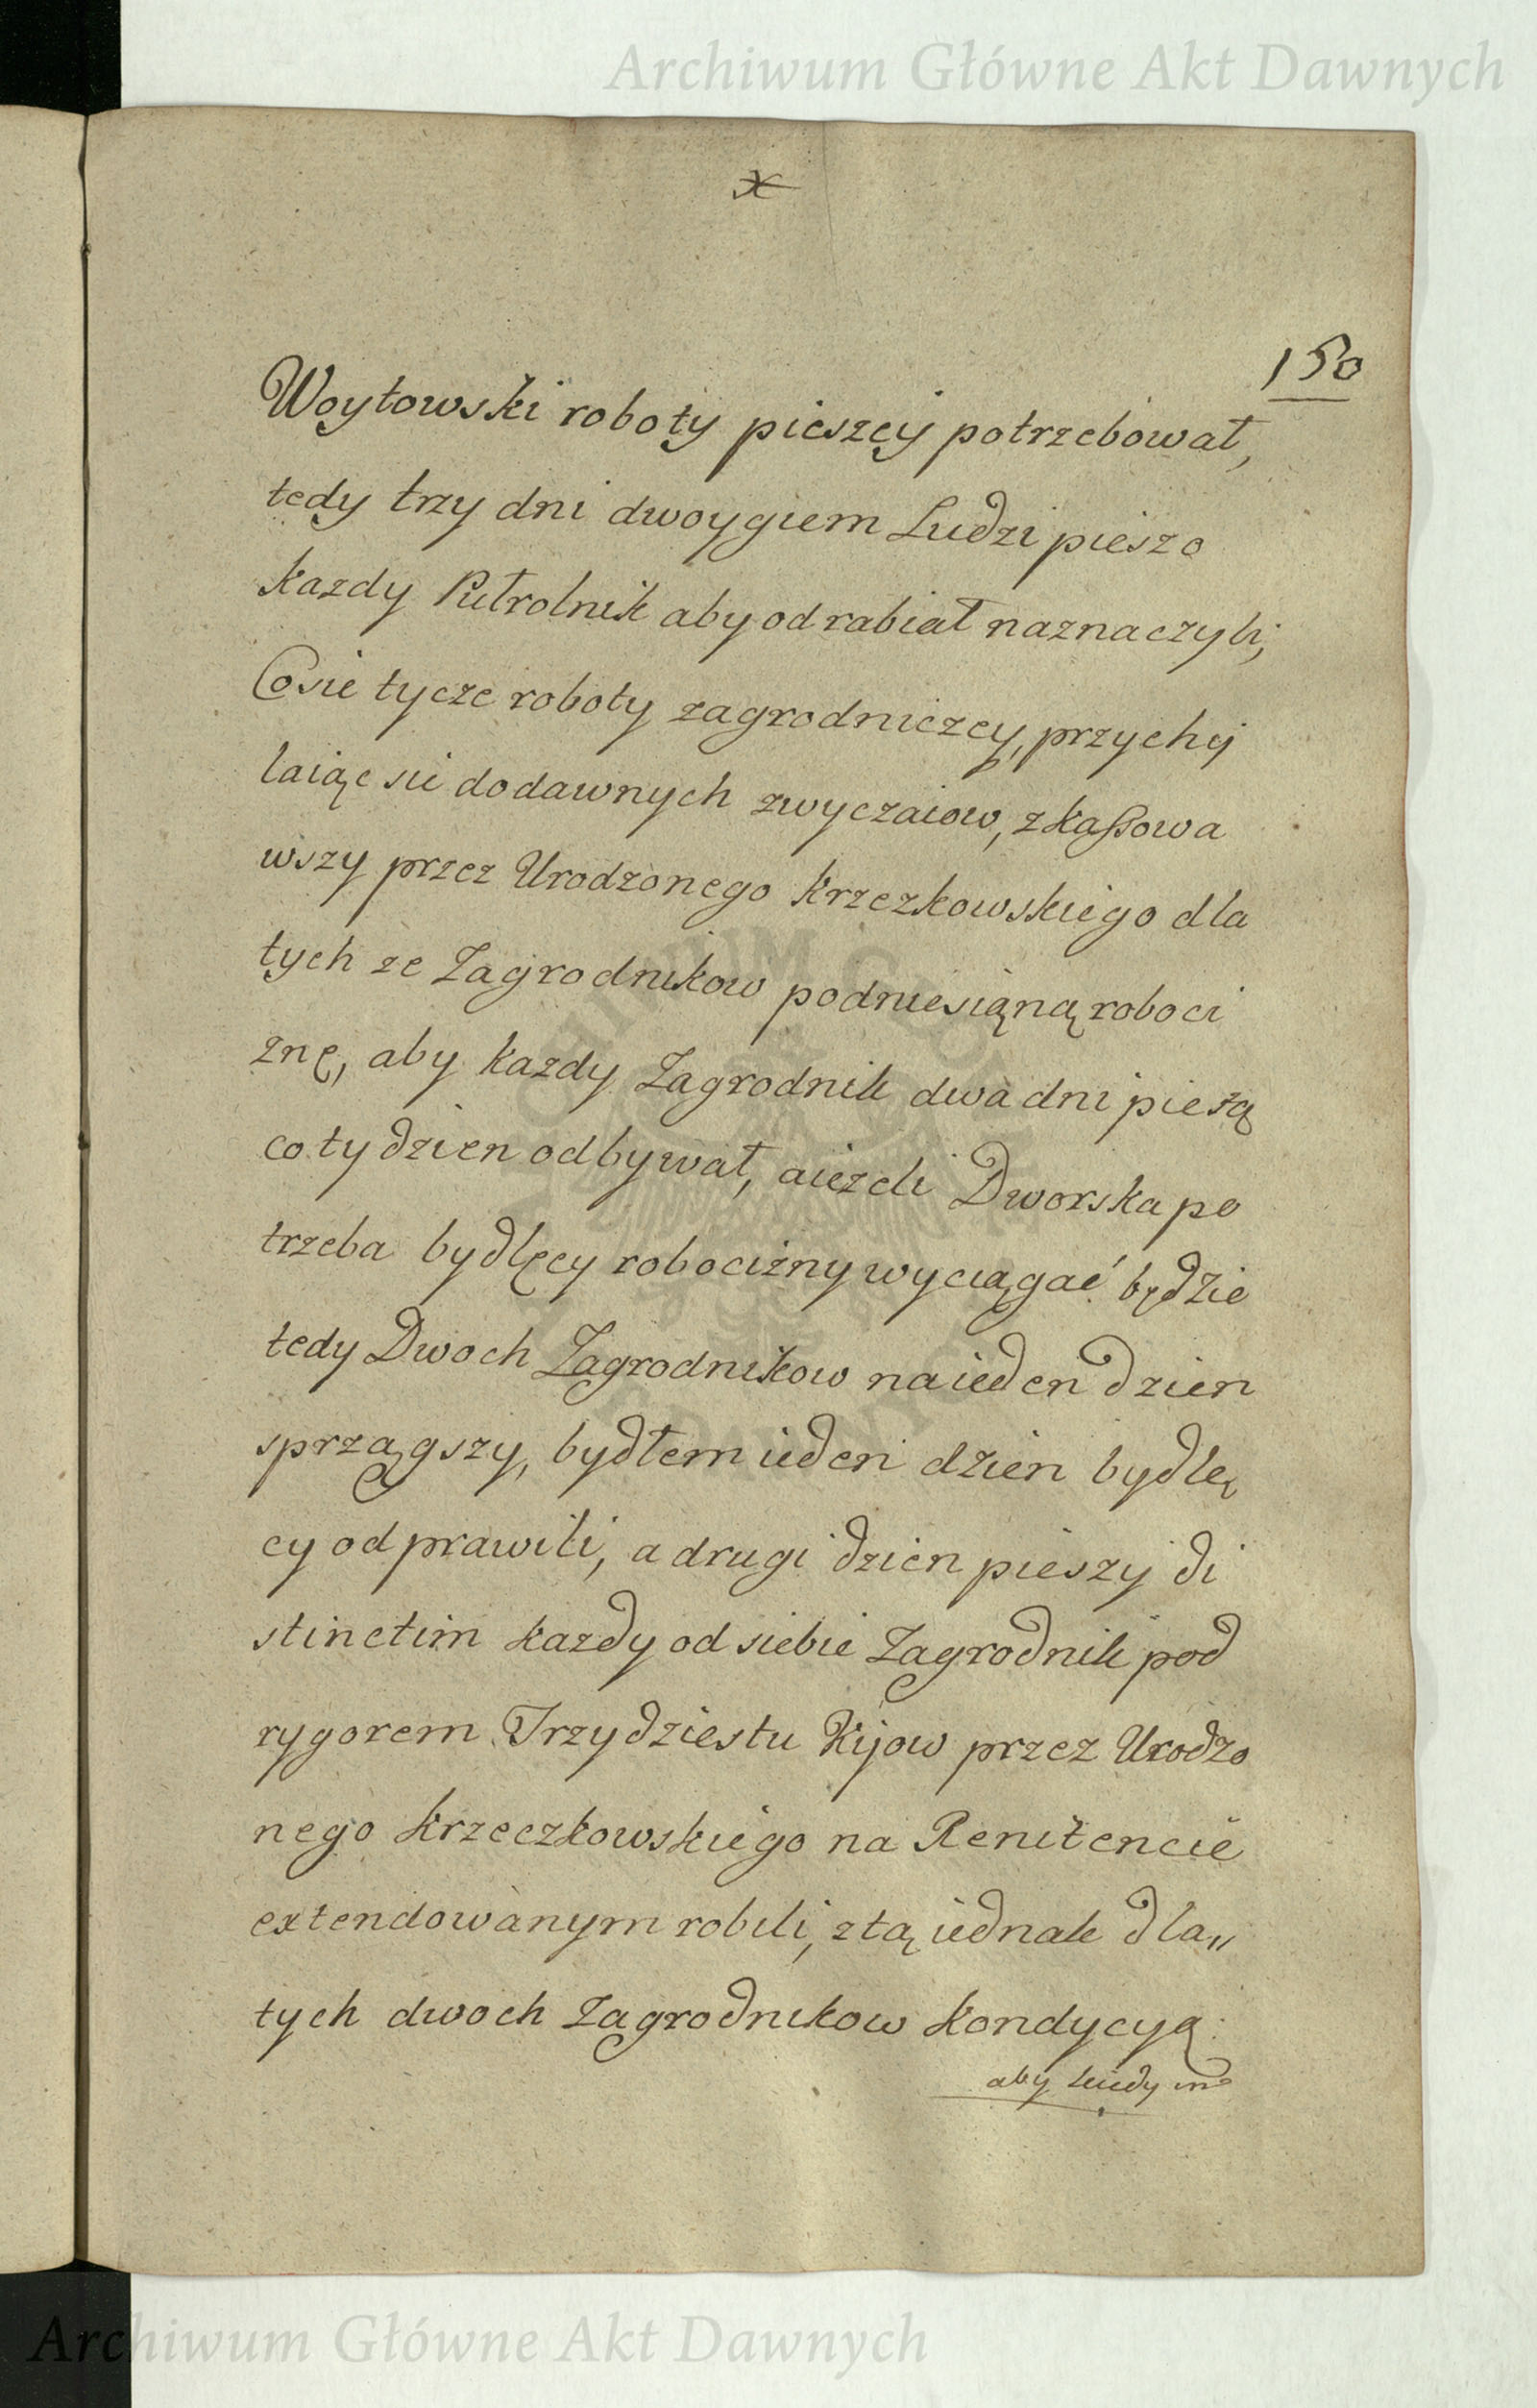 Archiwum Główne Akt Dawnych
150
Woytowski roboty pieszey potrzebował,
tedy trzy dni dwoygiem Ludzi pieszo
każdy Pułrolnik aby odrabiał naznaczyli;
Co sie tycze roboty zagrodniczey, przychy
laiąc sie do dawnych zwyczaiow, zkassowa
wszy przez Urodzonego Krzezkowskiego dla
tych ze Zagrodnikow podniesiąną roboci
znę, aby kazdy Zagrodnik dwa dni pieszą
co tydzien odbywał, a ieżeli Dworska po
trzeba bydlęcy robocizny wyciągać będzie
tedy Dwoch Zagrodnikow na ieden dzien
sprzągszy, bydłem ieden dzień bydlę
cy odprawili, a drugi dzien pieszy di
stinctim każdy od siebie Zagrodnik pod
rygorem Trzydziestu Kijow przez Urodzo
nego Krzeczkowskiego na Renitencie
extendowanym robili, z tą iednak dla„
tych dwoch Zagrodnikow Kondycyą
aby
Archiwum Główne Akt Dawnych